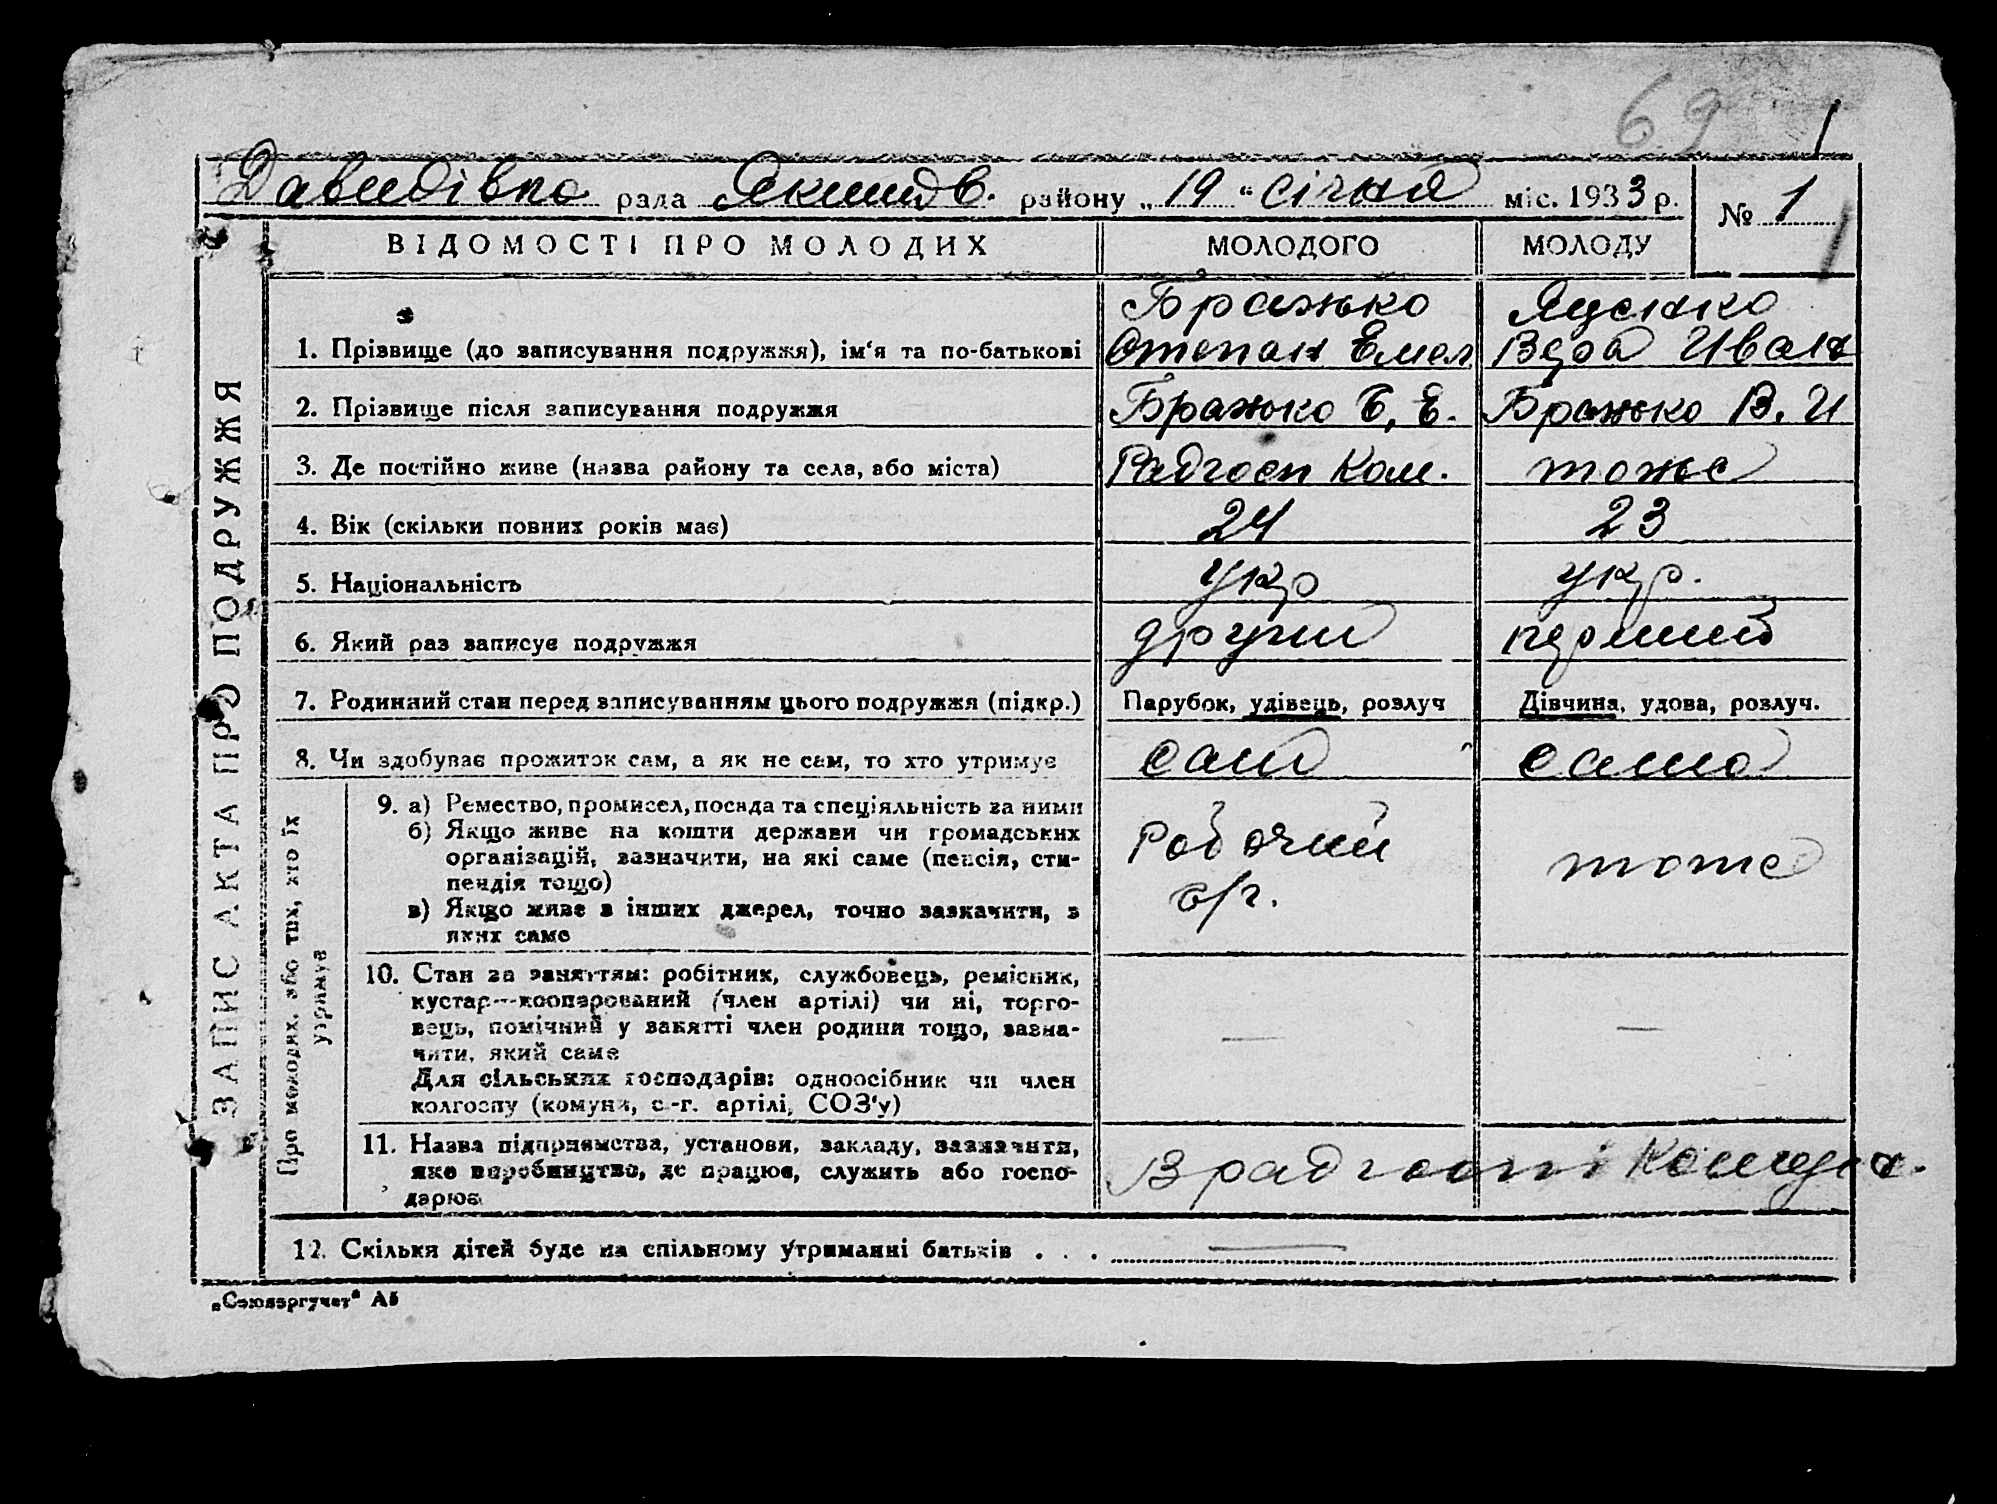 69
1
Давидівка рада Якимів. району „19“ січня міс. 1933 р.
№ 1
ВІДОМОСТІ ПРО МОЛОДИХ МОЛОДОГО МОЛОДУ
Бражко Яценко
1. Прізвище (до записування подружжя), ім'я та по-батькові Степан Емел Вера Иван
2. Прізвище після записування подружжя Бражко С. Е. Бражко В. И
3. Де постійно живе (назва району та села, або міста) Радгосп Ком. тоже
4. Вік (скільки повних років має) 24 23
5. Національність укр укр.
6. Який раз записує подружжя другий первий
7. Родинний стан перед записуванням цього подружжя (підкр.) Парубок, удівець, розлуч Дівчина, удова, розлуч.
8. Чи здобуває прожиток сам, а як не сам, то хто утримує сам сама
9. а) Ремество, промисел, посада та спеціяльність за ними
б) Якщо живе на кошти держави чи громадських
організацій, зазначити, на які саме (пенсія, сти-
пендія тощо)
в) Якщо живе з інших джерел, точно зазначити, з
яких саме
Робочий
с/г.
тоже
10. Стан за заняттям: робітник, службовець, ремісник,
кустар—кооперований (член артілі) чи ні, торго-
вець, помічний у занятті член родини тощо, зазна-
чити, який саме
Для сільських господарів: одноосібник чи член
колгоспу (комуни, с.-г. артілі, СОЗ'у)
— —
11. Назва підприємства, установи, закладу, зазначити,
яке виробництво, де працює, служить або госпо-
дарює
В радгоспі Комун.
12. Скільки дітей буде на спільному утриманні батьків . . . —
ЗАПИС АКТА ПРО ПОДРУЖЖЯ
Про молодих, або тих, хто їх
утримує
„Союзоргучет“ А5